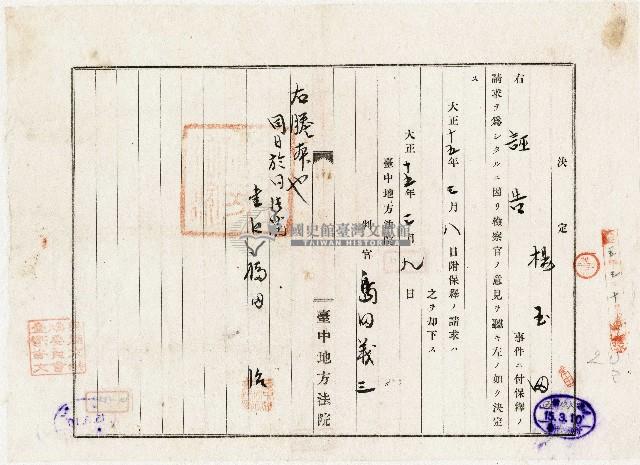 決定
楊玉
右誣告事件ニ付保釋ノ
請求ヲ爲シタルニ因リ檢察官ノ意見ヲ聽キ左ノ如ク決定
ス
大正十五年三月八日附保釋ノ請求ハ
之ヲ却下ス
大正十五年三月九日
臺中地方法院
判官 島田義三
右謄本也
同日於同法院
書記
臺中地方法院
國史館臺灣文獻館
TAIWAN HISTORICA
15.3.10